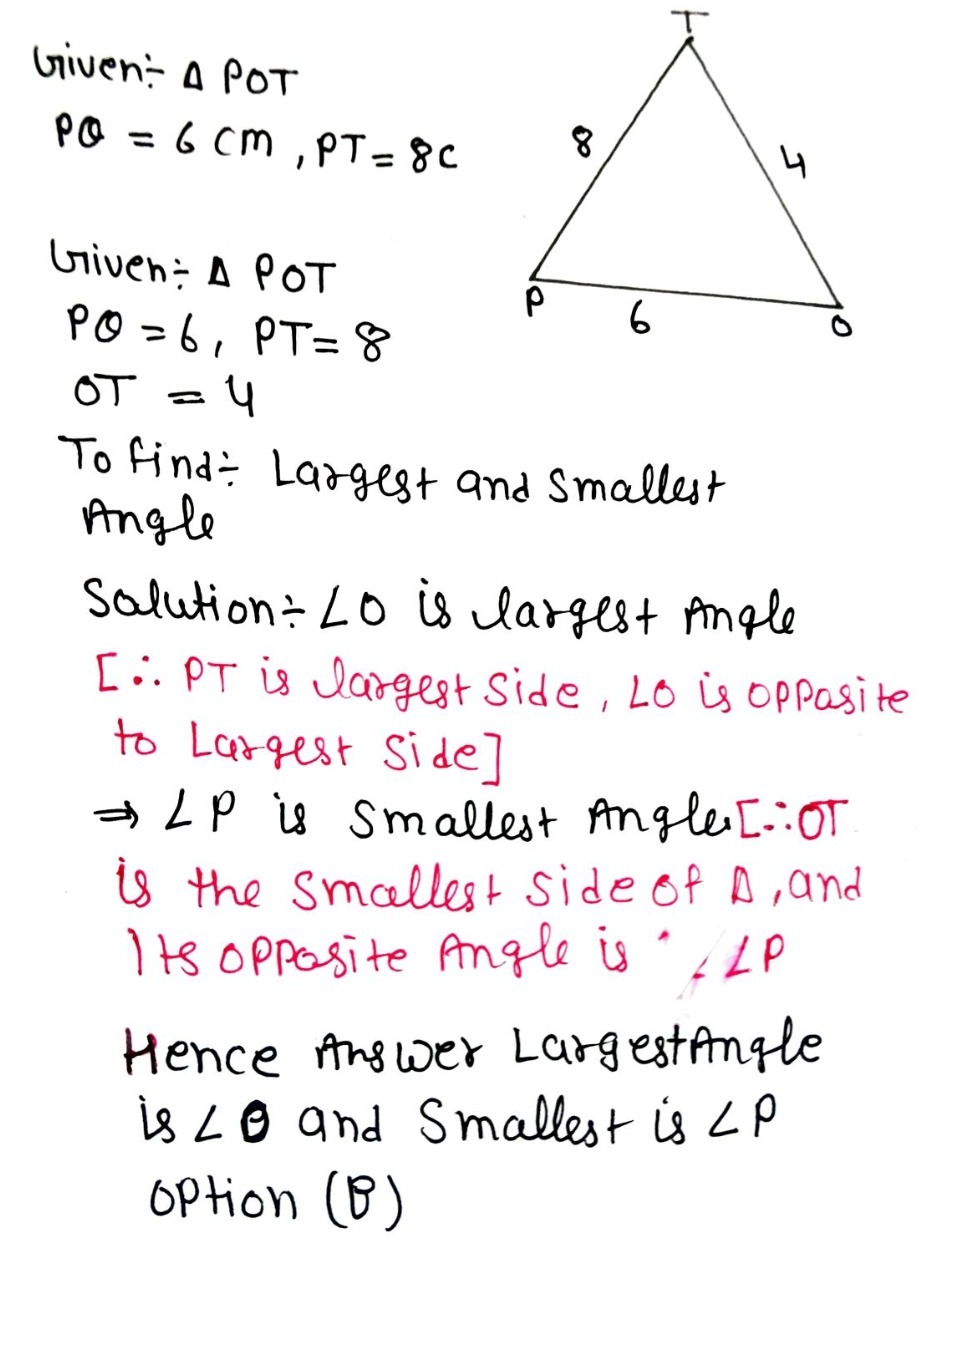 T
Given÷ Δ POT
PO = 6 cm , PT = 8c
8
4
Given÷ Δ POT
P
6
O
PO = 6, PT = 8
OT = 4
To find÷ Largest and Smallest
Angle
Solution÷ ∠O is largest Angle
[∴ PT is largest Side, ∠O is opposite
to Largest Side]
⇒ ∠P is Smallest Angle [∴ OT
is the Smallest Side of Δ, and
Its opposite Angle is ∠P
Hence Answer Largest Angle
is ∠O and Smallest is ∠P
option (B)